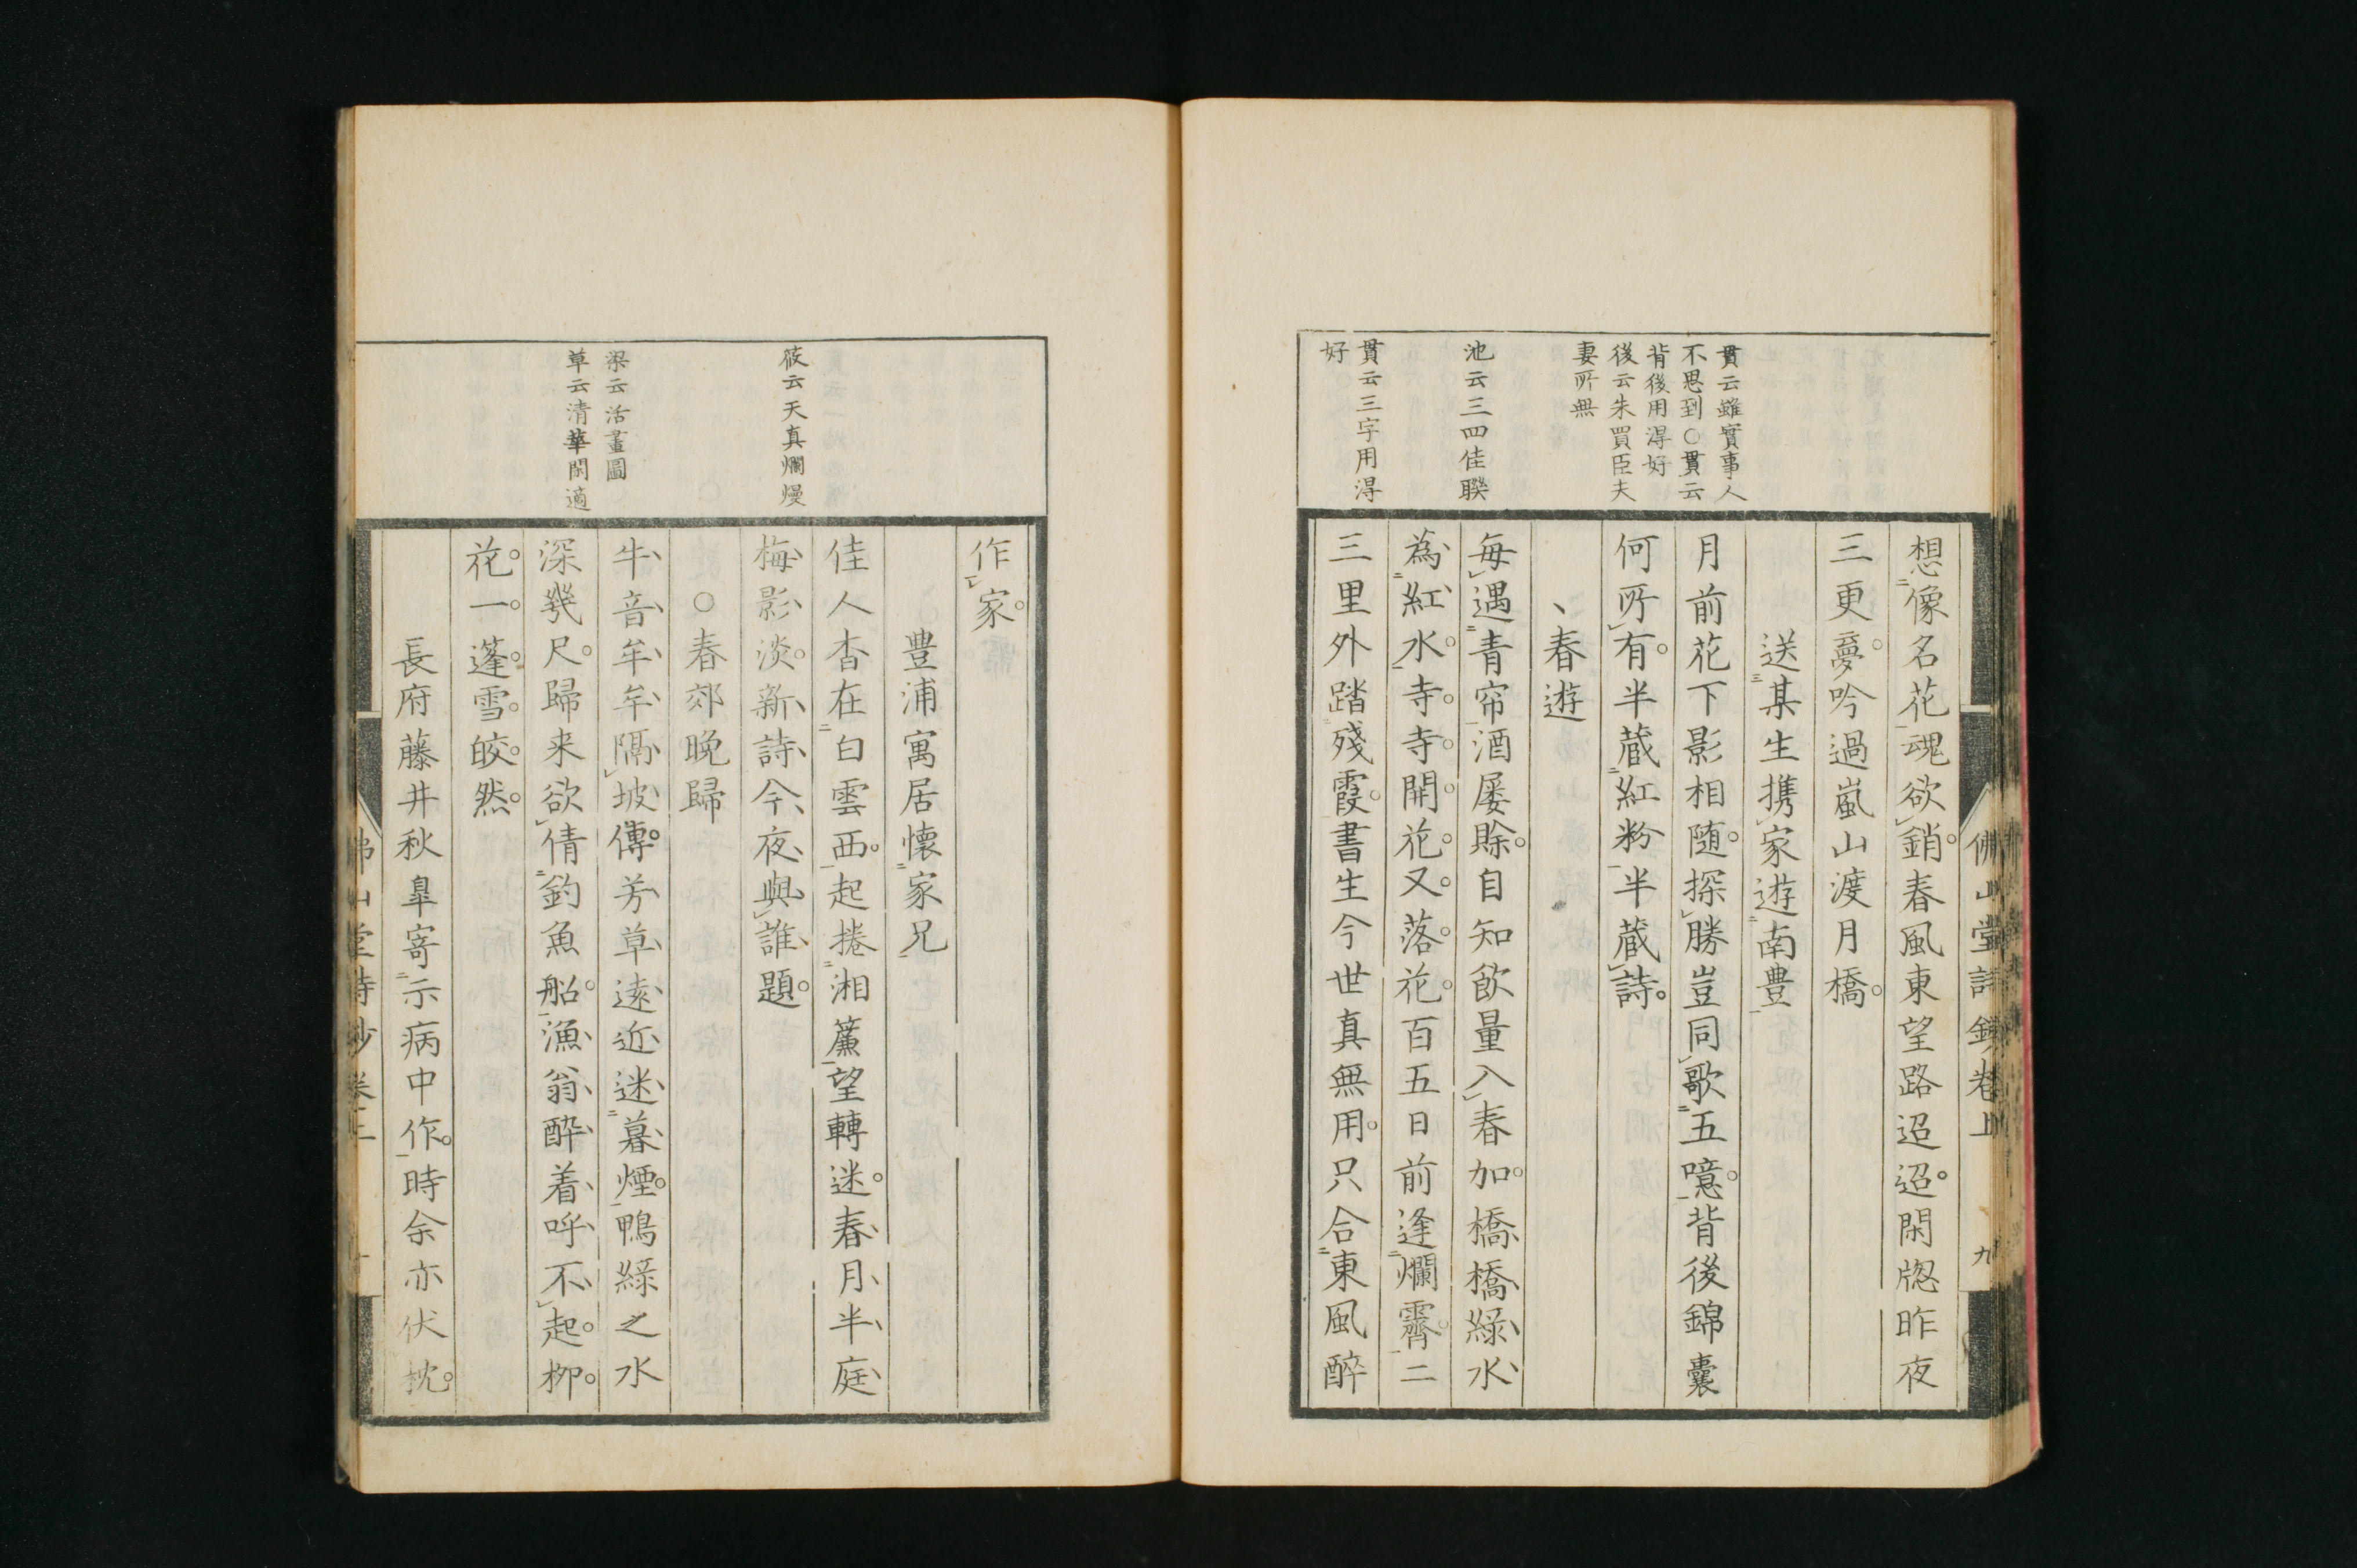 貫云雖實事人
不思到○貫云
背後用得好
後云朱買臣夫
妻所無
池云三四佳聯
貫云三字用得
好
想像名花魂欲銷春風東望路迢迢閑牕昨夜
三更夢吟過嵐山渡月橋
送某生携家遊南豊
月前花下影相随探勝豈同歌五噫背後錦囊
何所有半蔵紅粉半蔵詩
、春遊
毎遇青帘酒屡賒自知飲量入春加橋橋緑水
為紅水寺寺開花又落花百五日前逢爛霽二
三里外踏殘霞書生今世真無用只合東風醉
佛山堂詩鈔卷上
九
筱云天真爛熳
梁云活畫圖
草云清華閑適
作家
豊浦寓居懐家兄
佳人杳在白雲西起捲湘簾望轉迷春月半庭
梅影淡新詩今夜與誰題
○春郊晩歸
牛音牟牟隔坡傳芳草遠近迷暮煙鴨緑之水
深幾尺歸来欲倩釣魚船漁翁酔着呼不起柳
花一蓬雪皎然
長府藤井秋皐寄示病中作時余亦伏枕